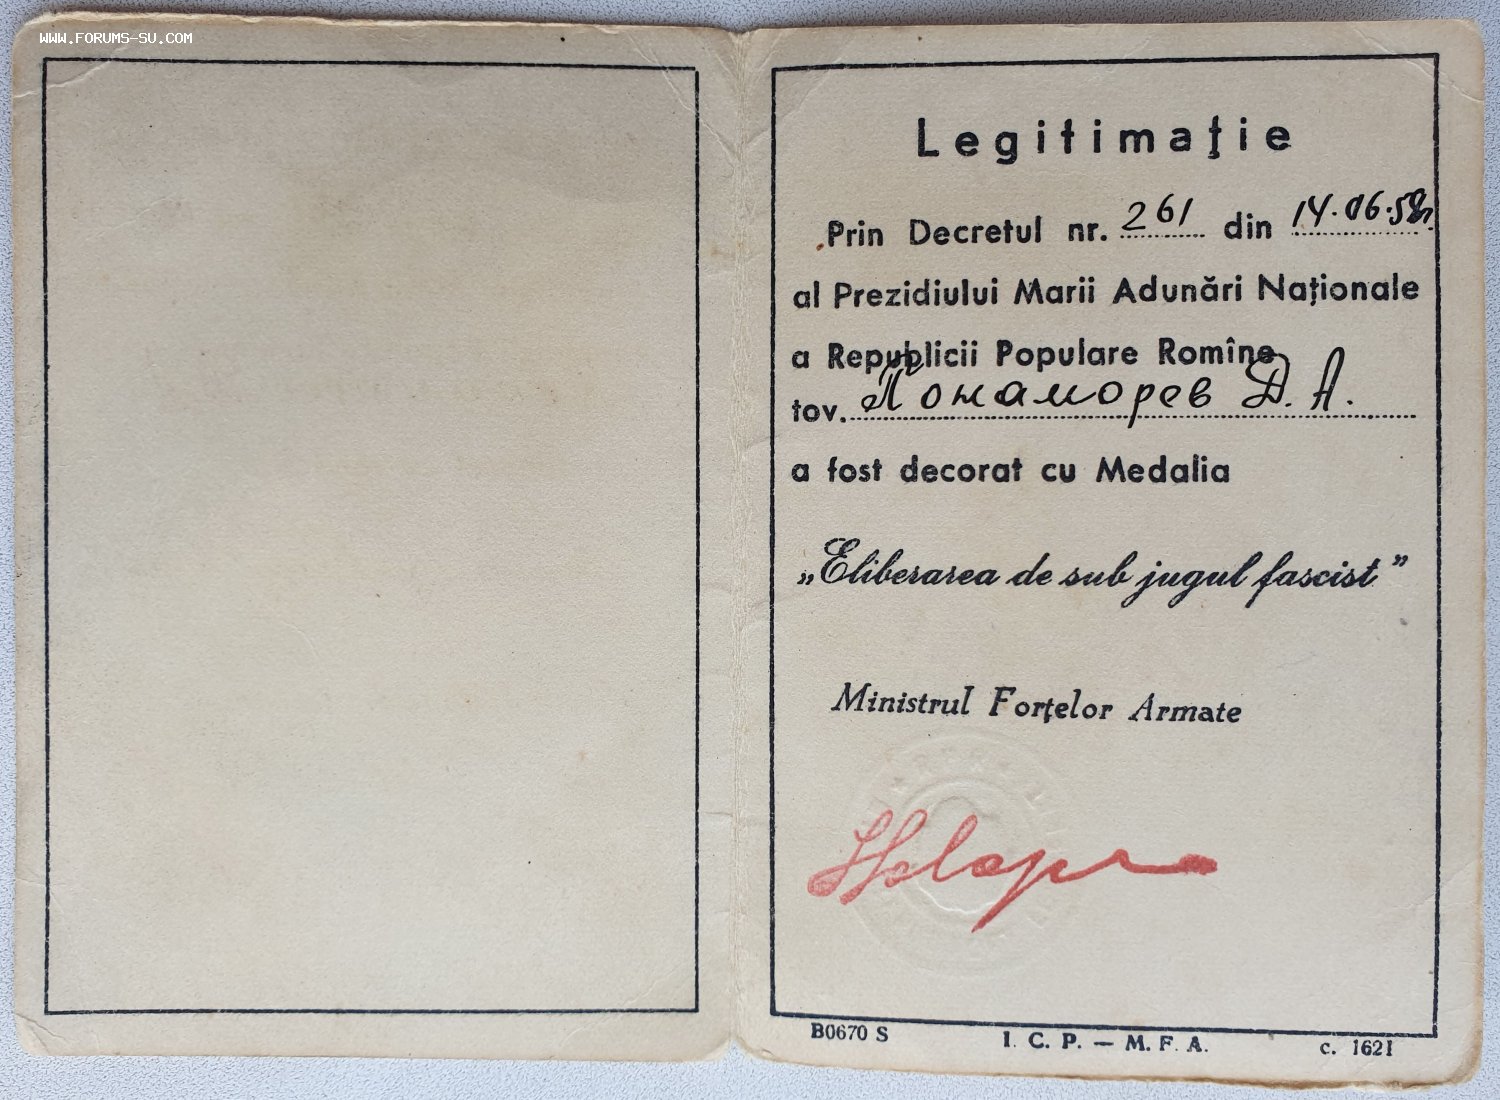 WWW.FORUMS-SU.COM
Legitimaţie
Prin Decretul nr. 261 din 14.06.58г.
al Prezidiului Marii Adunări Naţionale
a Republicii Populare Romîne
tov. Понаморев Д. А.
a fost decorat cu Medalia
„Eliberarea de sub jugul fascist”
Ministrul Forţelor Armate
B0670 S I. C. P. — M. F. A. c. 1621